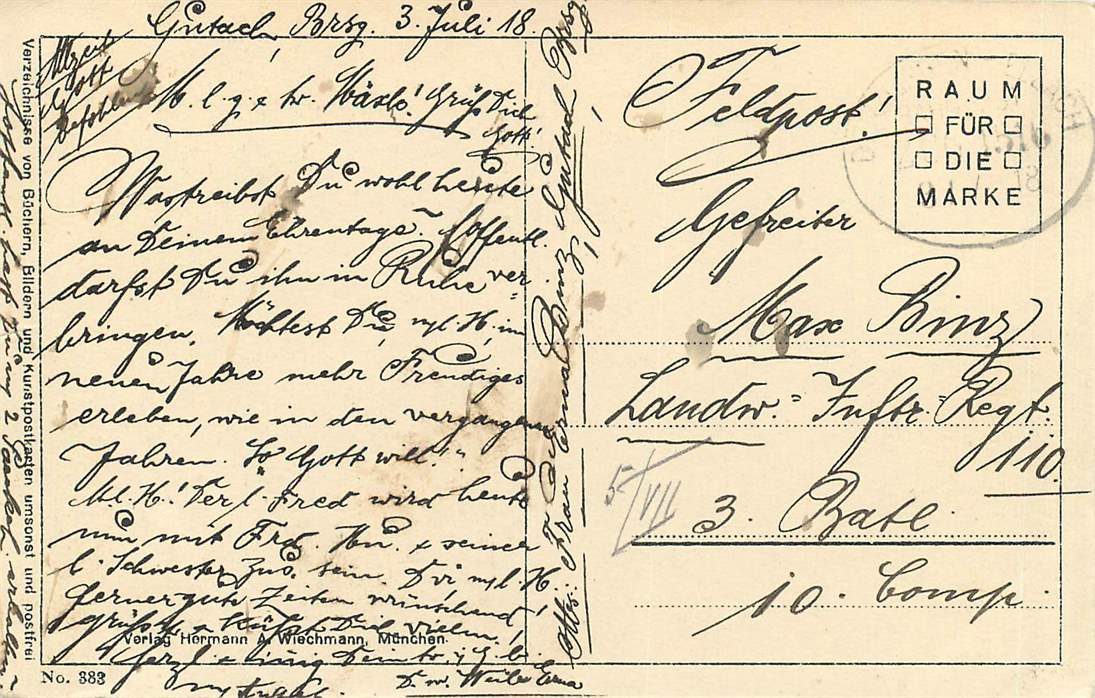 Gutach Brsg. 3. Juli 18.
Allzeit
Gott
befohlen
M. l. g. & tr. Maxle! Grüß Dich
Gott!
Was treibst Du wohl heute
an Deinem Ehrentage? Hoffentl.
darfst Du ihn in Ruhe ver-
bringen. Möchtest Du, m. l. H, im
neuen Jahre mehr Freudiges
erleben, wie in den vergangenen
Jahren. "So Gott will!"
M. l. H.! Der l. Fred wird heute
nun mit Frd. & seiner
l. Schwester zus. sein. Dir, m. l. H
ferner gute Zeiten wünschend
grüßt & küßt Dich vielm.!
herzl. & innig Dein tr.
D. m. Weible Erna
Hoffentl. hast Du m. 2 erhalten
Verzeichnisse von Büchern, Bildern und Kunstpostkarten umsonst und postfrei
Verlag Hermann A. Wiechmann, München
No. 383
Frau Erna Binz, Gutach Brsg
Feldpost!
RAUM
FÜR
DIE
MARKE
Gefreiter
Max Binz
Landw.=Inftr.=Regt.
110.
5/VII
3. Batl.
10. Comp.